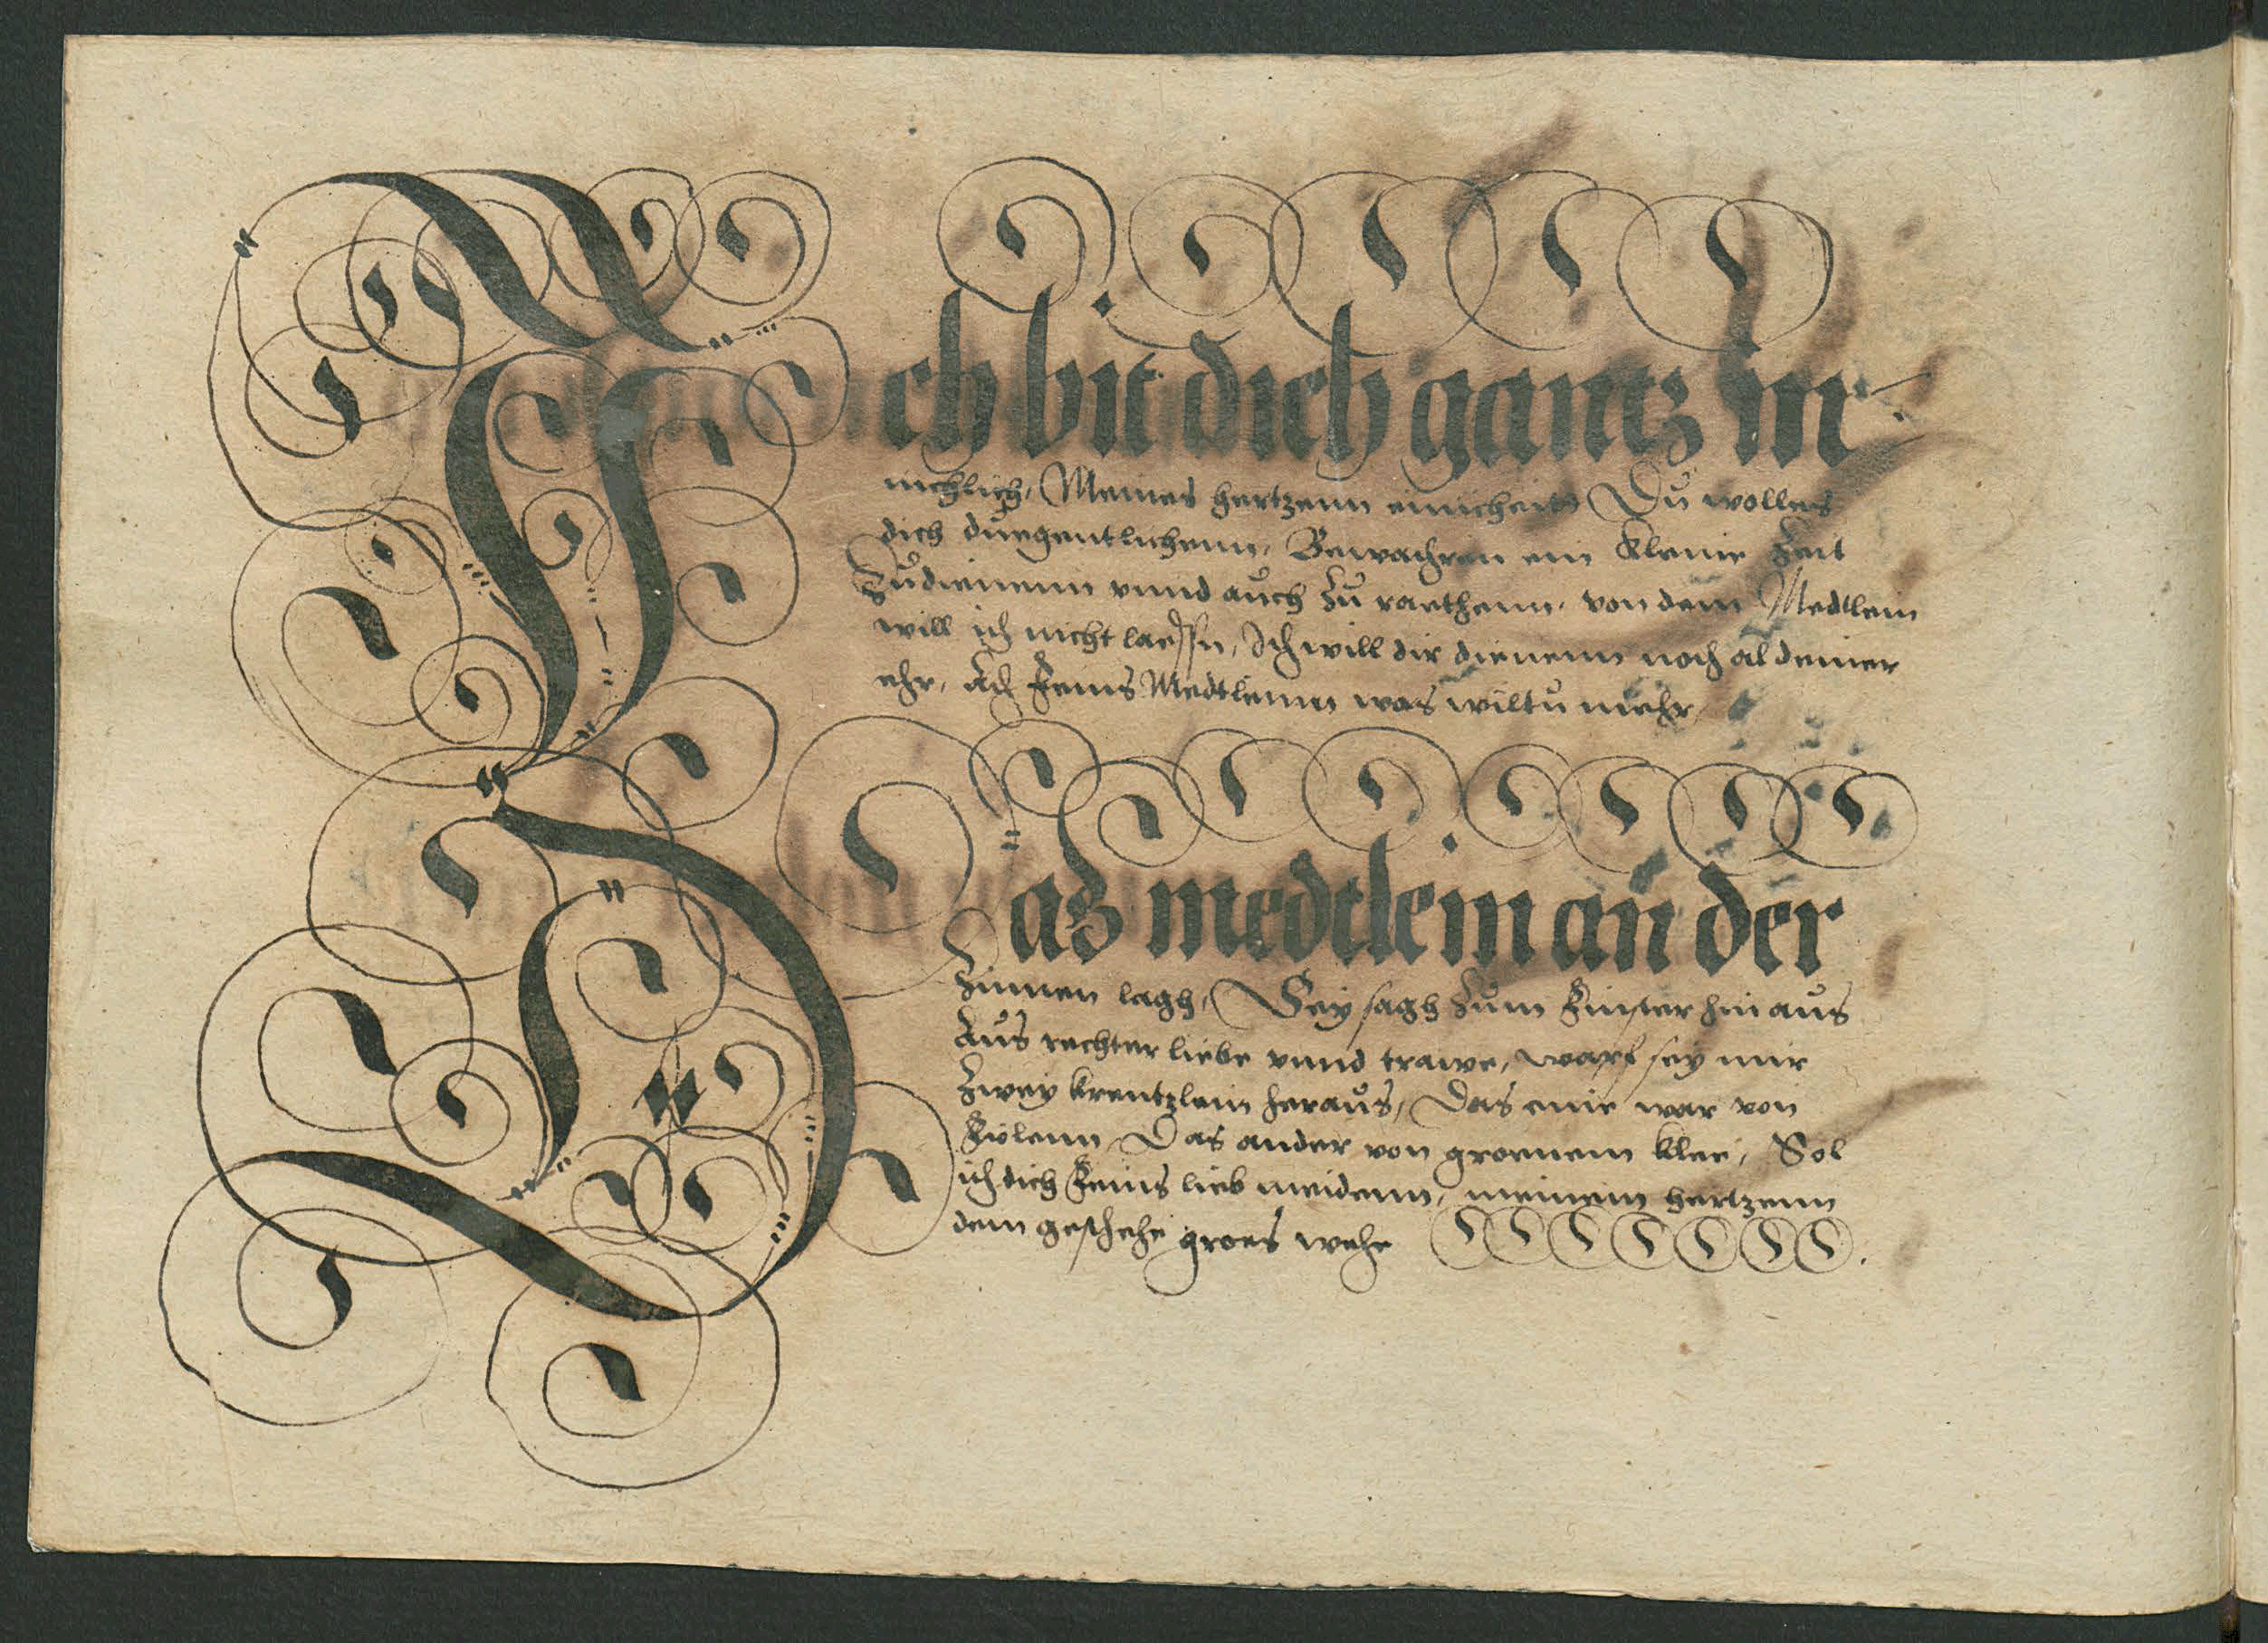 Ich bit dich gantz in
nichlich, Meines hertzenn einicheit Du wolles
dich duegentlichenn, Bewachren ein Kleine Zeit
Zudienenn vnnd auch zu raethenn, von dem Medtlein
will ich nicht laessn, Ich will dir dienenn noch al deiner
ehr, Ach Feins Medtlinn was wiltu mehr
Daß medtlein an der
Zinnen lagh, Sey sagh zum Finster hinaus
Aus rechter liebe vnnd trawe, warf sey mir
Zwey krentzlein heraus, Das eine war von
Fiolenn Das ander von groenem klee, Sol
ich dich Feins lieb meidenn, meinem hertzenn
dem geschehe groes wehe